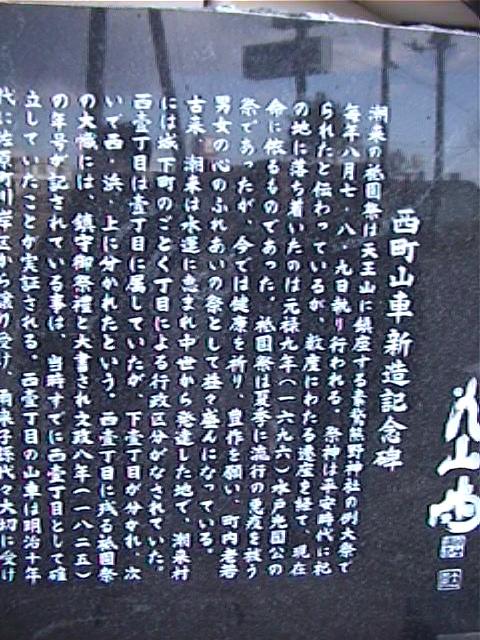 西町山車新造記念碑
潮来の祗園祭は天王山に鎮座する素鵞熊野神社の例大祭で
毎年八月七・八・九日執り行われる。祭神は平安時代に祀
られたと伝わっているが、数度にわたる遷座を経て、現在
の地に落ち着いたのは元禄九年(一六九六)水戸光圀公の
命に依るものであった。祗園祭は夏季に流行の悪疫を祓う
祭であったが、今では健康を祈り、豊作を願い、町内老若
男女の心のふれあいの祭として益々盛んになっている。
古来、潮来は水運に恵まれ中世から発達した地で、潮来村
には城下町のごとく丁目による行政区分がなされていた。
西壹丁目は壹丁目に属していたが、下壹丁目が分かれ、次
いで西・浜、上に分かれたという。西壹丁目に残る祗園祭
の大幟には、鎮守御祭禮と大書され文政八年(一八二五)
の年号が記されている事は、当時すでに西壹丁目として確
立していたことが実証される。西壹丁目の山車は明治十年
代に佐原町川岸区から譲り受け、爾来子孫代々大切に受け